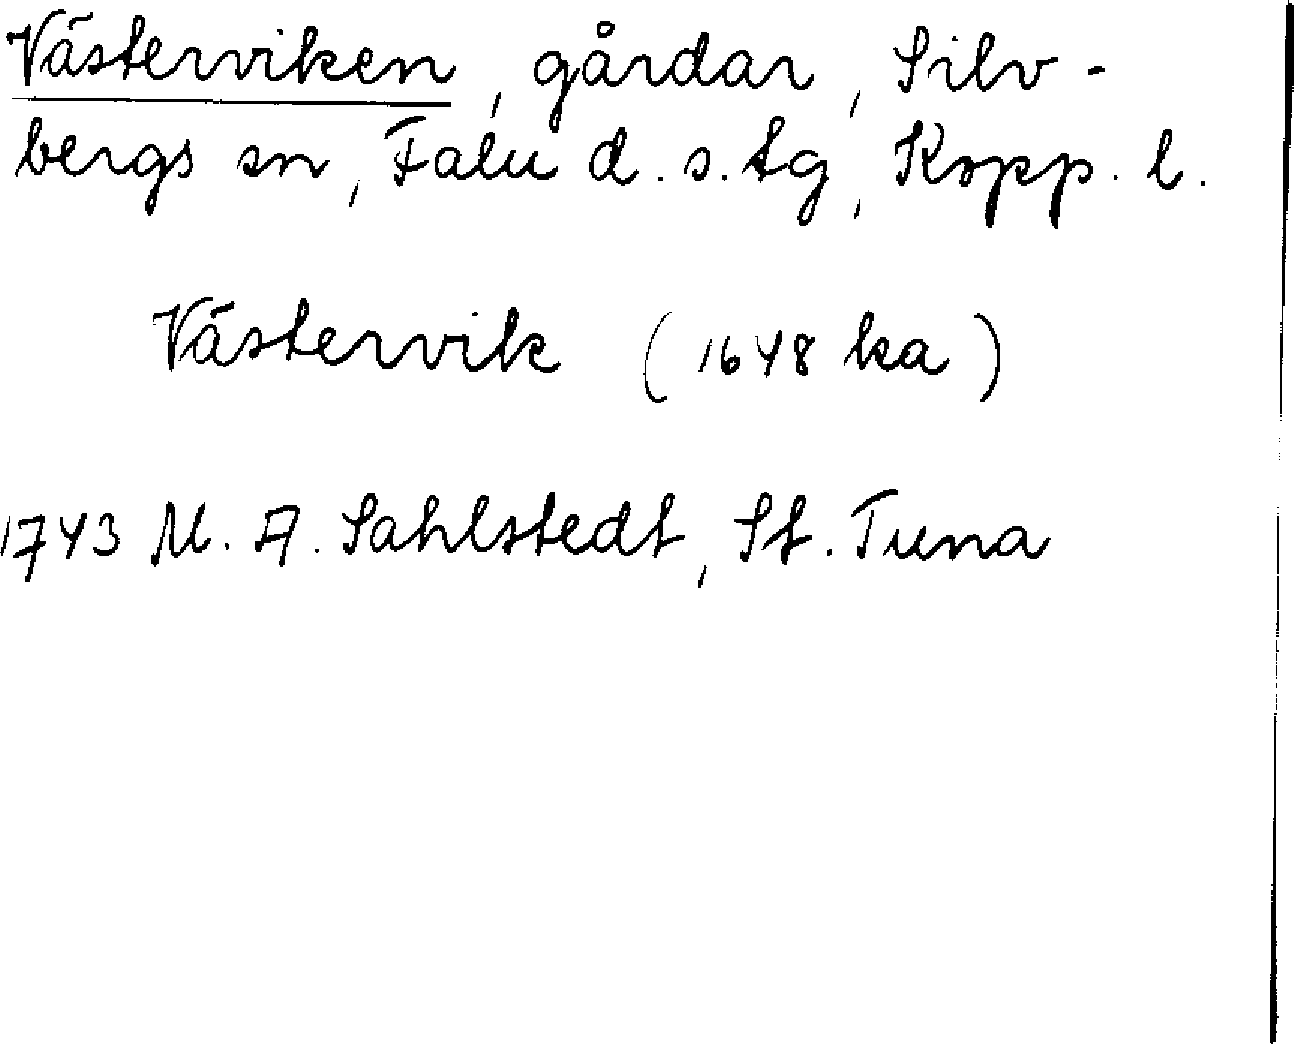 Västerviken, gårdar, Silv-
bergs sn, Falu d.s.tg, Kopp. l.
Västervik (1648 ka)
1743 M. A. Sahlstedt, St. Tuna